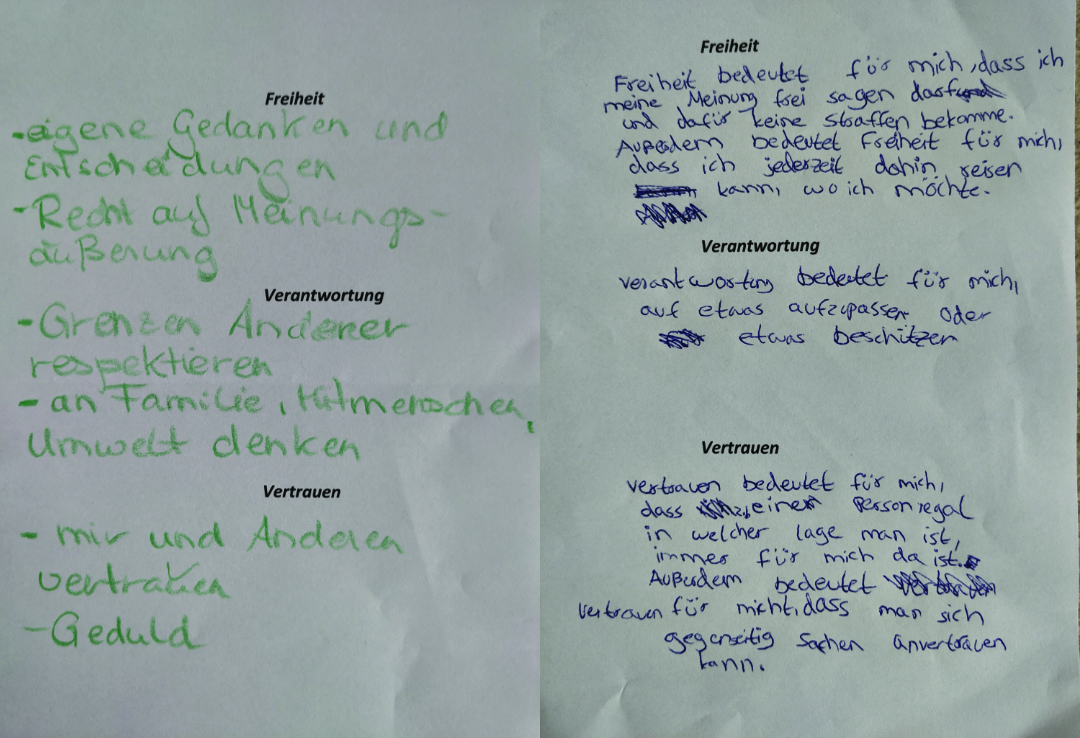 Freiheit
-eigene Gedanken und
Entscheidungen
-Recht auf Meinungs-
äußerung
Verantwortung
-Grenzen Anderer
respektieren
- an Familie, Mitmenschen,
Umwelt denken
Vertrauen
- mir und Anderen
vertrauen
- Geduld
Freiheit
Freiheit bedeutet für mich, dass ich
meine Meinung frei sagen darf
und dafür keine Straffen bekomme.
Außerdem bedeutet Freiheit für mich,
dass ich jederzeit dahin reisen
kann, wo ich möchte.
Verantwortung
Verantwortung bedeutet für mich,
auf etwas aufzupassen oder
etwas beschützen
Vertrauen
Vertrauen bedeutet für mich,
dass einen Person regal
in welcher lage man ist,
immer für mich da ist.
Außerdem bedeutet
Vertrauen für micht, dass man sich
gegenseitig Sachen anvertrauen
kann.